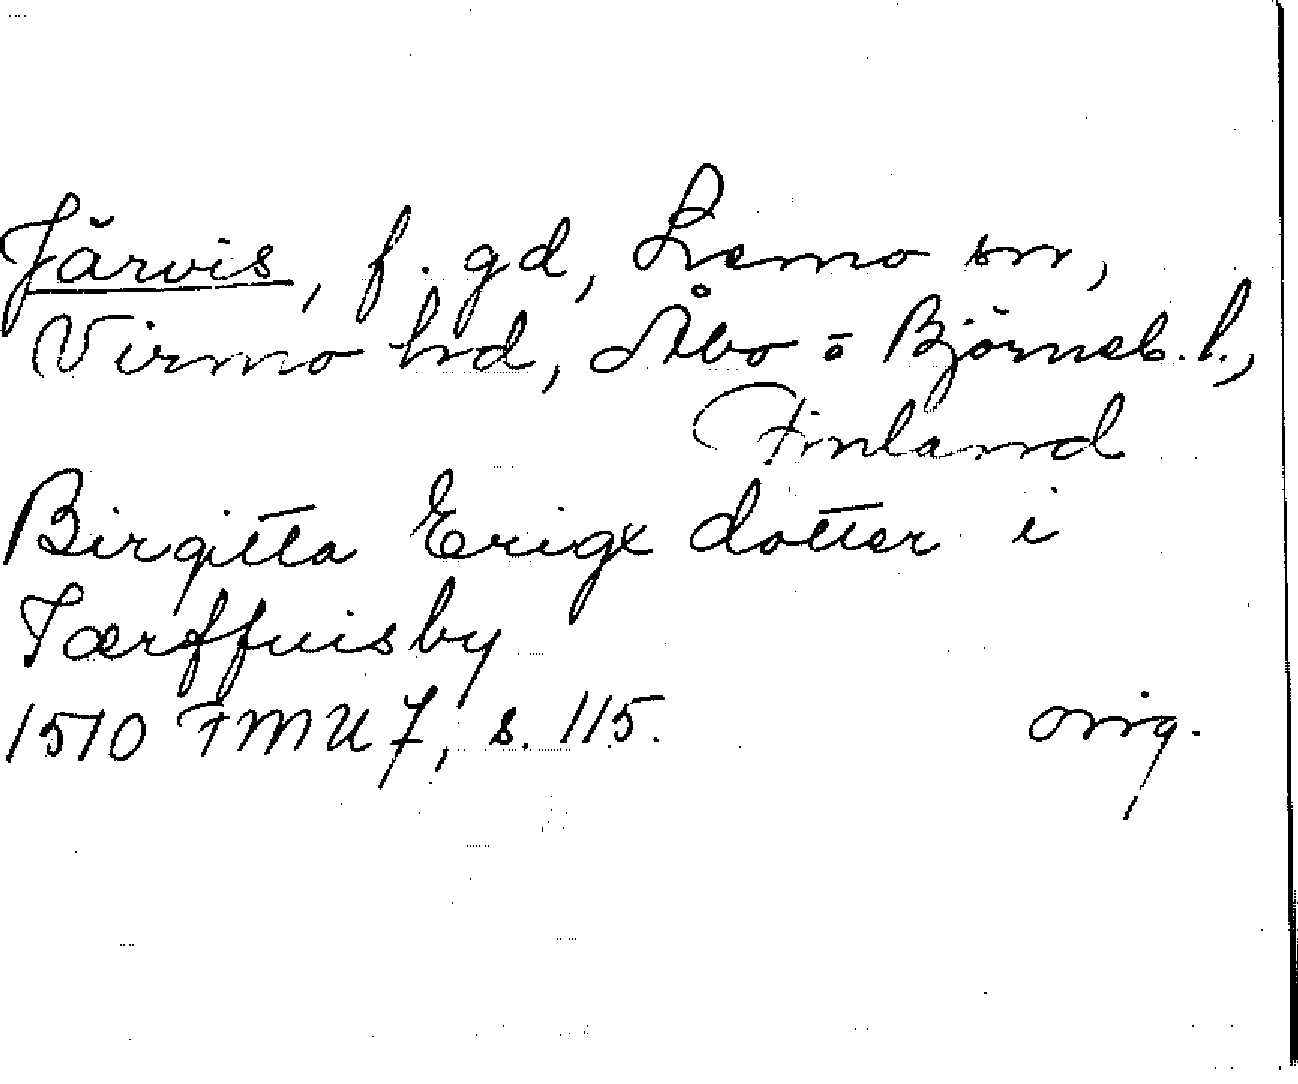 Järvis, f. gd, Lemo sn,
Virmo hd, Åbo o Björneb. l.,
Finland
Birgitta Erigx dotter i
Tærffuisby
1510 FMU 7, s. 115. orig.